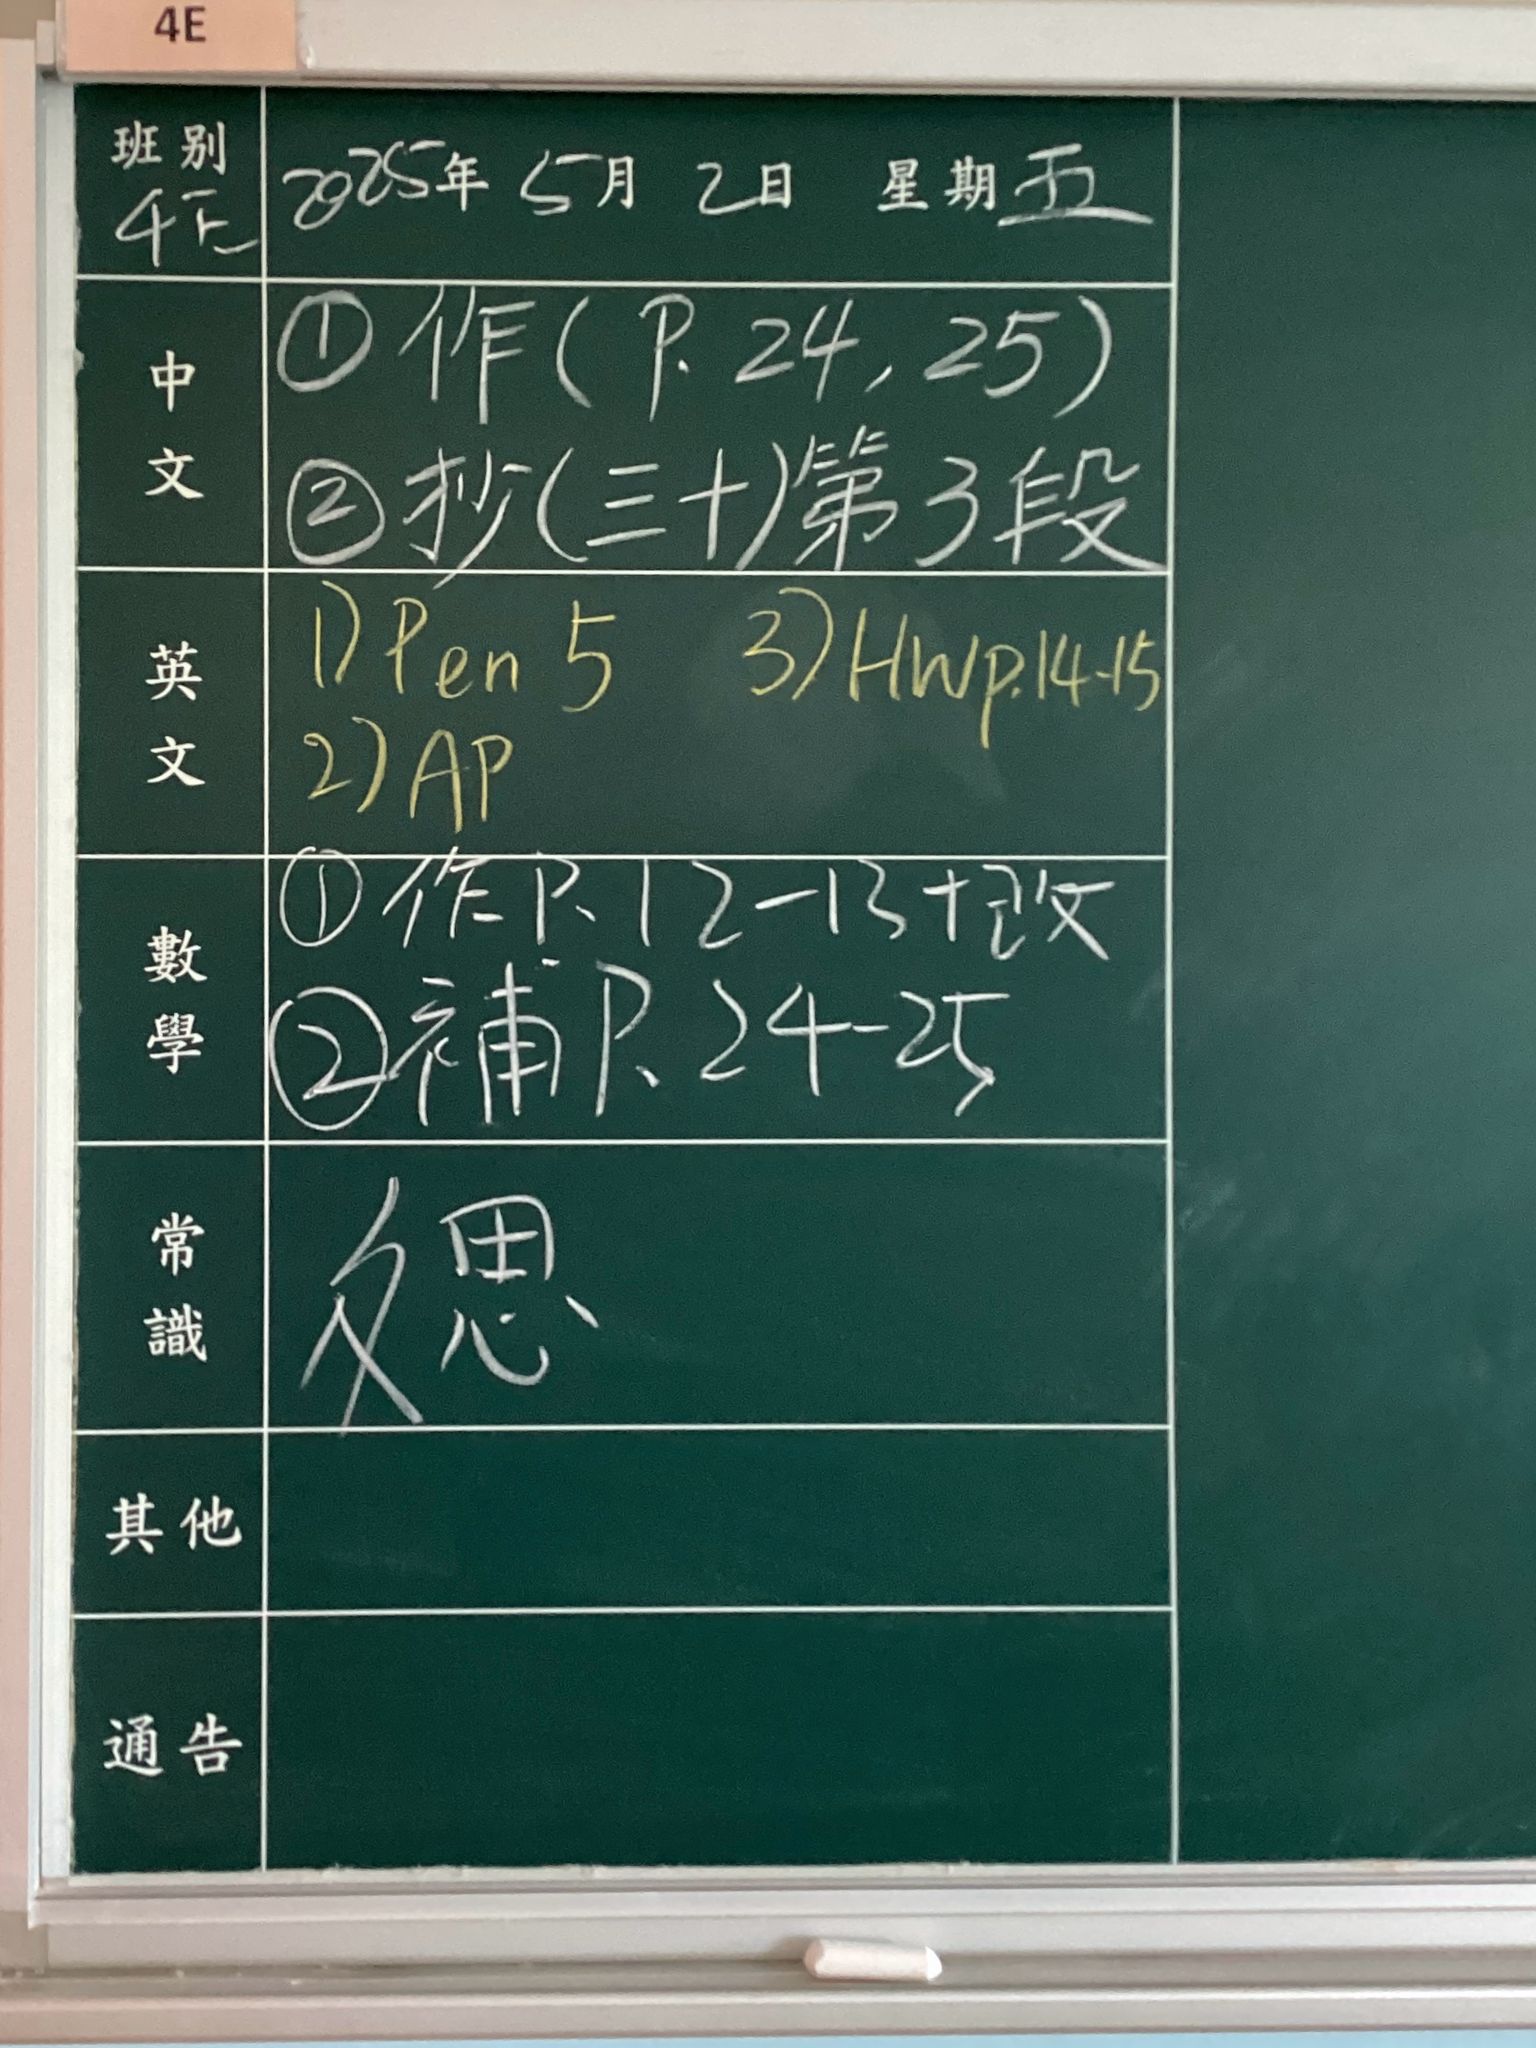 4E
班别 2025年 5月 2日 星期五
4E
中文 ①作(P.24,25)
②抄(三十)第3段
英文 1)Pen 5 3)HWp.14-15
2)AP
數學 ①作P.12-13+改
②補P.24-25
常識 反思
其他
通告